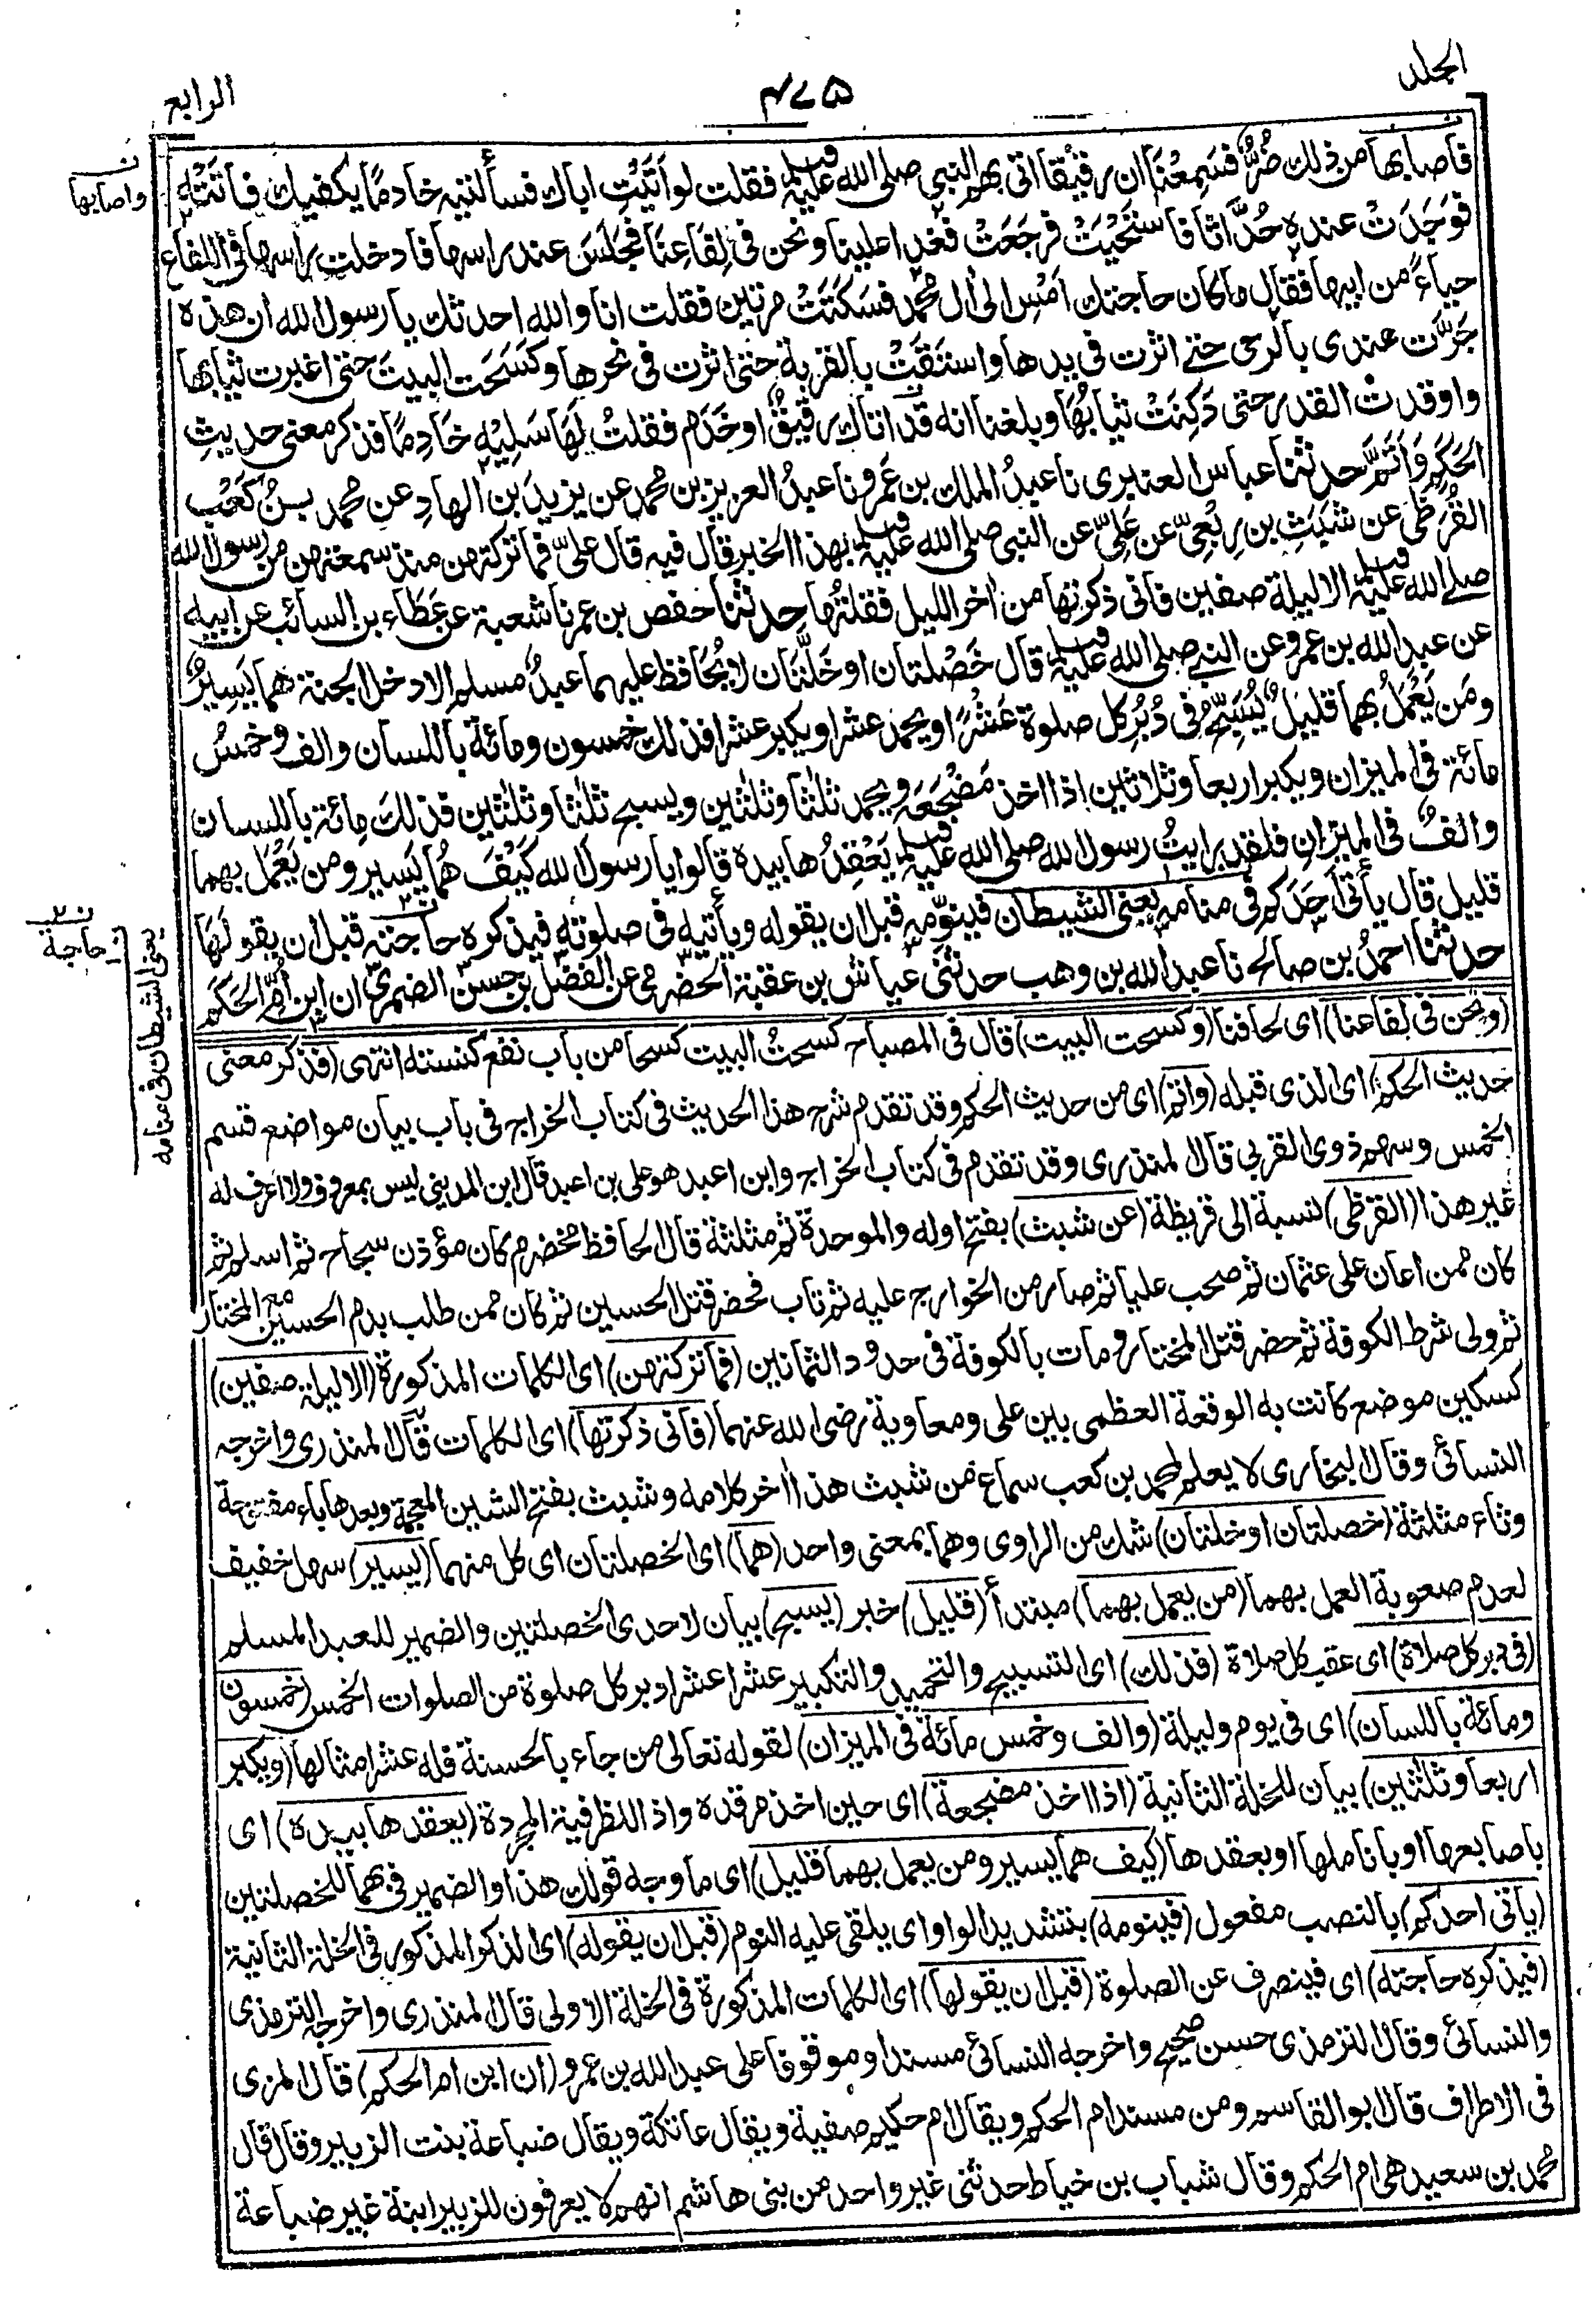 الجلد
۴۷۵
الرابع
فاصابها من ذلك ضُرٌّ فسَمِعْنَا ان رقيقا اتى بهم النبي صلى الله عليه وسلم فقلت لو اَتَيْتِ اباك فسألتيه خادمًا يكفيك فاَتَتْهُ
فوَجَدَتْ عنده حُدَّاثا فاستَحْيَتْ فرجَعَتْ فغدا علينا ونحن في لِفَاعِنَا فجَلَسَ عند راسها فادخلت راسها في اللفاع
حياءً من ابيها فقال ما كان حاجتك اَمْسِ الى اٰل محمد فسَكَتَتْ مرتين فقلت انا والله احدثك يا رسول الله ان هذه
جَرَّت عندي بالرحى حتے اثرت في يدها واستَقَتْ بالقربة حتى اثرت في نحرها وكَسَحَت البيتَ حتى اغبرت ثيابها
واوقدتْ القدر حتى دَكِنَتْ ثيابُهَا وبلغنا انه قد اتاك رقيقٌ او خَدَم فقلتُ لَهَا سَلِيْهِ خَادِمًا فذكر معنى حديثِ
الحَكَمِ وَاَتَمَّ حدثنا عباس العنبرى نا عبدُ الملك بن عَمرو نا عبدُ العزيز بن محمد عن يزيدَ بن الهادِ عن محمد بنُ كَعْبٍ
القُرَظى عن شَبَثِ بن رِبْعِىّ عن عَلِىّ عن النبي صلى الله عليه وسلم بهذا الخبر قال فيه قال علىّ فما تركتهن منذ سمعتهن من رسول الله
صلے الله عليه وسلم الا ليلة صفين فانى ذكرتها من اٰخر الليل فقلتُها حدثنا حفص بن عمر نا شعبة عن عَطَاء بن السائب عن ابيه
عن عبد الله بن عمرو عن النبي صلى الله عليه وسلم قال خَصْلتان او خَلَّتَان لا يُحَافظ عليهما عبدٌ مسلم الا دخل الجنة هما يَسِيرٌ
ومَن يَعْمَلُ بهما قليلٌ يُسَبِّحُ في دُبُرِ كل صلوة عَشْرًا ويحمد عشرا ويكبر عشرا فذلك خمسون ومائة باللسان والف وخمسُ
مائة في الميزان ويكبر اربعا وثلاثين اذا اخذ مَضْجَعَه ويحمد ثلٰثا وثلٰثين ويسبح ثلٰثا وثلٰثين فذلك مِائة باللسان
والفٌ في الميزانِ فلقد رايتُ رسول الله صلى الله عليه وسلم يَعْقِدُها بيده قالوا يا رسول الله كَيْفَ هُما يَسير ومن يَعْمَل بهما
قليل قال يأتى اَحَدَكم في منامه يعنى الشيطان فينوّمه قبل ان يقوله ويأتيه في صلوته فيذكره حاجته قبل ان يقولَهَا
حدثنا احمدُ بن صالح نا عبد الله بن وهب حدثنى عياش بن عقبة الحضرمى عن الفضل بن حسن الضمرىّ ان ابن اُمِّ الحَكَم
ن
واصابها
ن
حاجة
يعنى الشيطان فى منامه
(ونحن فى لفاعنا) اى لحافنا (وكسحت البيت) قال فى المصباح كسحتُ البيت كسحا من باب نفع كنسته انتهى (فذكر معنى
حديث الحكم) اى الذى قبله (واتم) اى من حديث الحكم وقد تقدم شرح هذا الحديث فى كتاب الخراج فى باب بيان مواضع قسم
الخمس وسهم ذوى القربى قال المنذرى وقد تقدم فى كتاب الخراج وابن اعبد هو على بن اعبد قال ابن المدينى ليس بمعروف ولا اعرف له
غير هذا (القرظى) نسبة الى قريظة (عن شبث) بفتح اوله والموحدة ثم مثلثة قال الحافظ مخضرم كان مؤذن سجاح ثم اسلم ثم
كان ممن اعان على عثمان ثم صحب عليا ثم صار من الخوارج عليه ثم تاب فحضر قتل الحسين ثم كان ممن طلب بدم الحسين مع المختار
ثم ولى شرط الكوفة ثم حضر قتل المختار ومات بالكوفة فى حدود الثمانين (فما تركتهن) اى الكلمات المذكورة (الا ليلة صفين)
كسكين موضع كانت به الوقعة العظمى بين على ومعاوية رضى الله عنهما (فانى ذكرتها) اى الكلمات قال المنذرى واخرجه
النسائى وقال البخارى لا يعلم لمحمد بن كعب سماع من شبث هذا اٰخر كلامه وشبث بفتح الشين المعجمة وبعدها باء مفتوحة
وثاء مثلثة (خصلتان او خلتان) شك من الراوى وهما بمعنى واحد (هما) اى الخصلتان اى كل منهما (يسير) سهل خفيف
لعدم صعوبة العمل بهما (من يعمل بهما) مبتدأ (قليل) خبر (يسبح) بيان لاحدى الخصلتين والضمير للعبد المسلم
(فى دبر كل صلاة) اى عقب كل صلاة (فذلك) اى التسبيح والتحميد والتكبير عشرا عشرا دبر كل صلوة من الصلوات الخمس (خمسون
ومائة باللسان) اى فى يوم وليلة (والف وخمس مائة فى الميزان) لقوله تعالى من جاء بالحسنة فله عشر امثالها (ويكبر
اربعا وثلثين) بيان للخلة الثانية (اذا اخذ مضجعة) اى حين اخذ مرقده واذا للظرفية المجردة (يعقدها بيده) اى
باصابعها او باناملها او بعقدها (كيف هما يسير ومن يعمل بهما قليل) اى ما وجه قولك هذا والضمير فى هما للخصلتين
(ياتى احدكم) بالنصب مفعول (فينومه) بتشديد الواو اى يلقى عليه النوم (قبل ان يقوله) اى الذكر المذكور فى الخلة الثانية
(فيذكره حاجته) اى فينصرف عن الصلوة (قبل ان يقولها) اى الكلمات المذكورة فى الخلة الاولى قال المنذرى واخرجه الترمذى
والنسائى وقال الترمذى حسن صحيح واخرجه النسائى مسندا وموقوفا على عبد الله بن عمرو (ان ابن ام الحكم) قال المزى
فى الاطراف قال ابو القاسم ومن مسند ام الحكم ويقال ام حكيم صفية ويقال عاتكة ويقال ضباعة بنت الزبير وقال قال
محمد بن سعيد هى ام الحكم وقال شباب بن خياط حدثنى غير واحد من بنى هاشم انهم لا يعرفون للزبير ابنة غير ضباعة